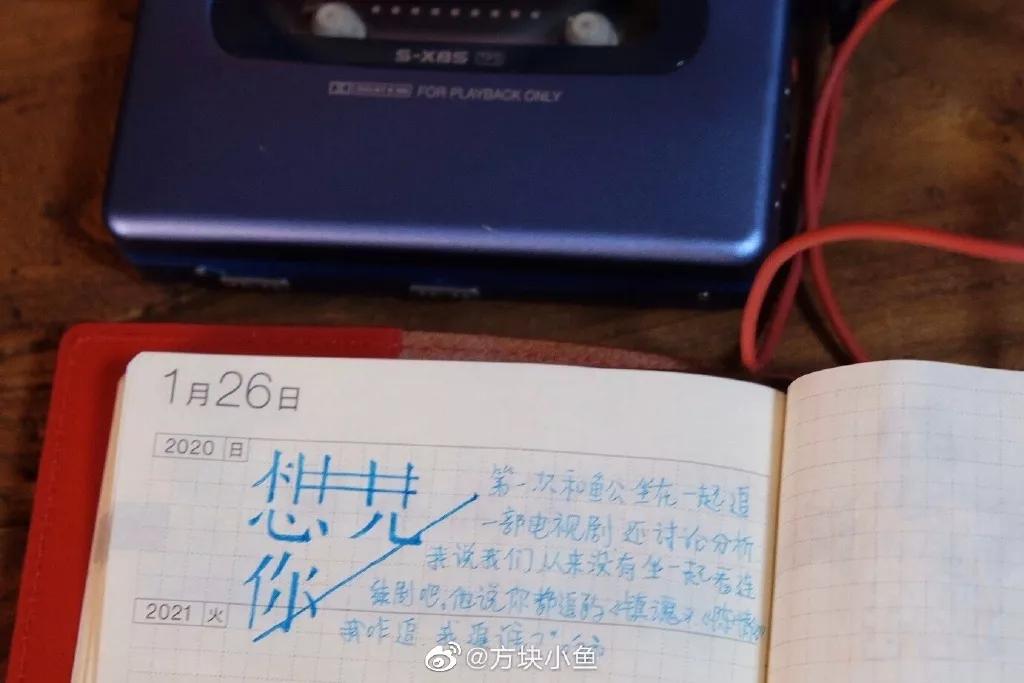 S-XBS
FOR PLAYBACK ONLY
1月26日
2020 日
想见
你
第一次和鱼公坐在一起追
一部电视剧 还讨论分析
来说我们从来没有坐一起看连
续剧吧,他说你都追的《镇魂》《陈情》
我咋追 我追谁了"
2021 火
@方块小鱼